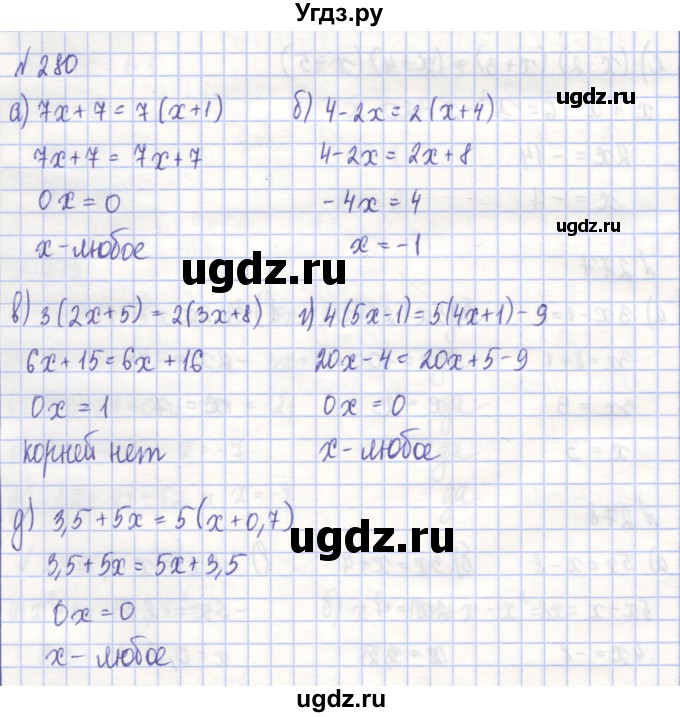 Угдз.ру
№ 280
а) 7x+7=7(x+1)
7x+7=7x+7
0x=0
x-любое
б) 4-2x=2(x+4)
4-2x=2x+8
-4x=4
x=-1
в) 3(2x+5)=2(3x+8)
6x+15=6x+16
0x=1
корней нет
г) 4(5x-1)=5(4x+1)-9
20x-4=20x+5-9
0x=0
x-любое
д) 3,5+5x=5(x+0,7)
3,5+5x=5x+3,5
0x=0
x-любое
ugdz.ru
ugdz.ru
ugdz.ru
ugdz.ru
ugdz.ru
ugdz.ru
ugdz.ru